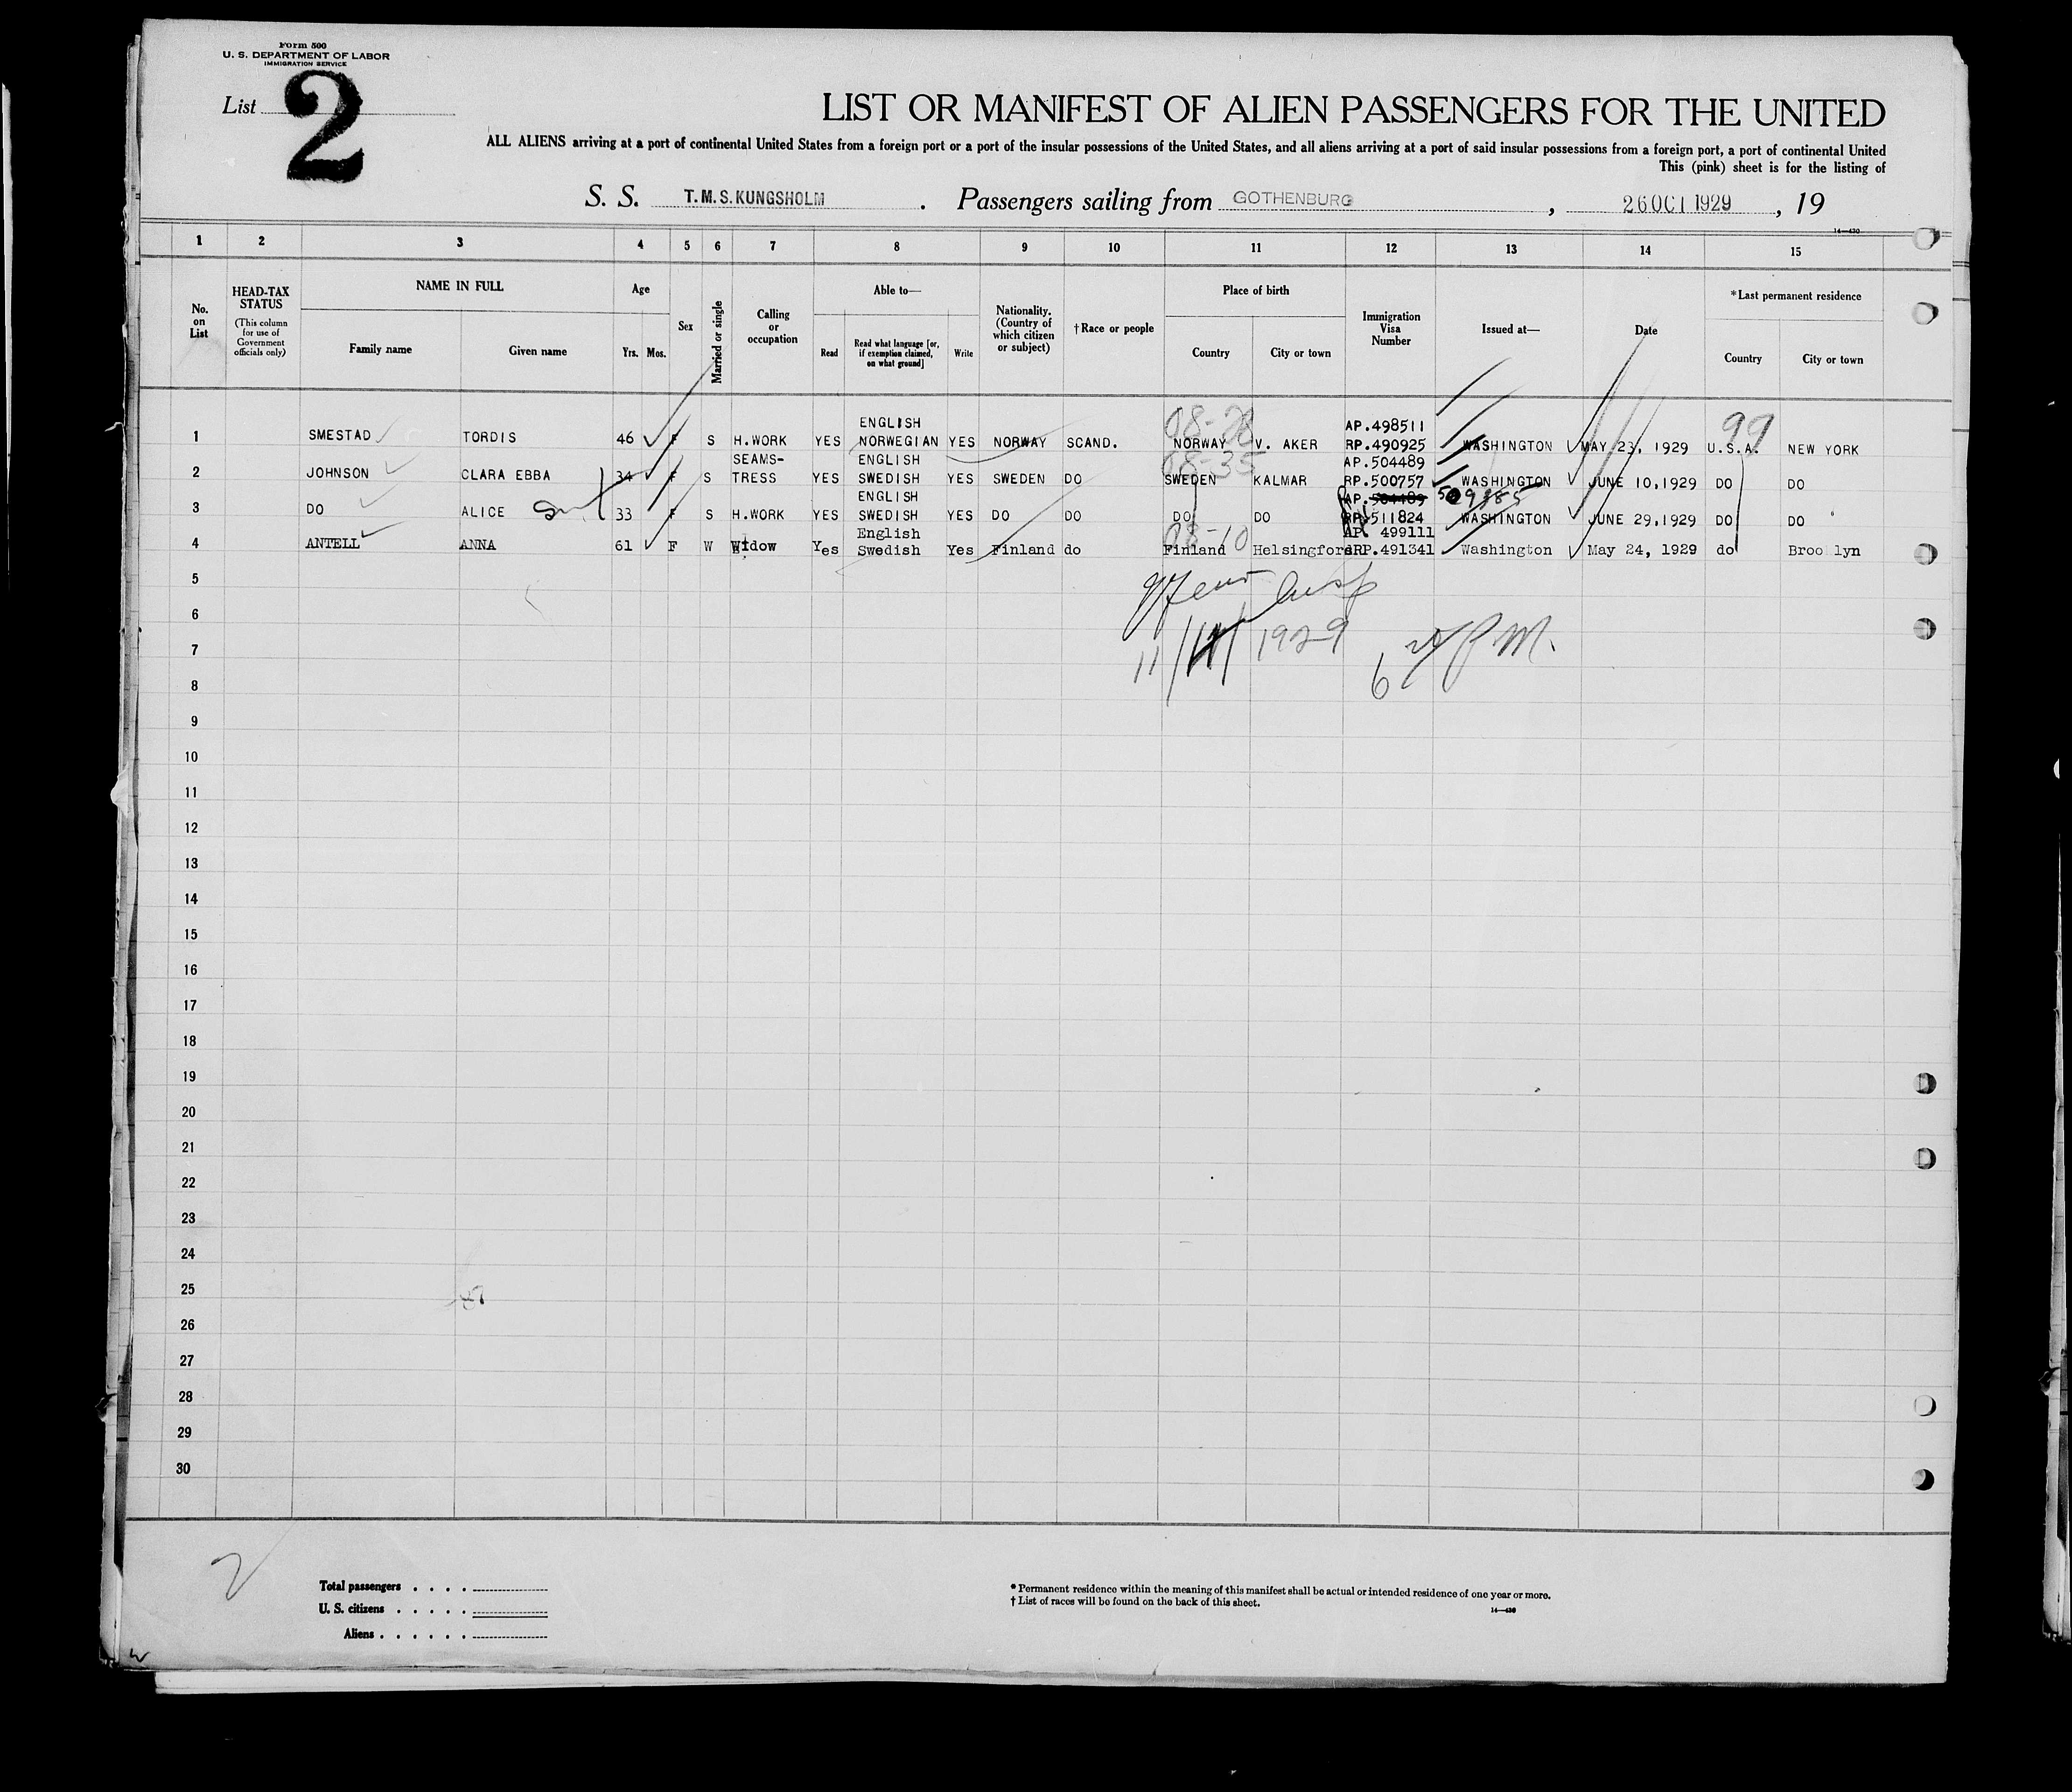 Form 500
U. S. DEPARTMENT OF LABOR
IMMIGRATION SERVICE
List 2
LIST OR MANIFEST OF ALIEN PASSENGERS FOR THE UNITED
ALL ALIENS arriving at a port of continental United States from a foreign port or a port of the insular possessions of the United States, and all aliens arriving at a port of said insular possessions from a foreign port, a port of continental United
This (pink) sheet is for the listing of
S. S. T.M.S. KUNGSHOLM . Passengers sailing from GOTHENBURG , 26 OCT 1929 , 19
14—430
1 2 3 4 5 6 7 8 9 10 11 12 13 14 15
No. on List
HEAD-TAX STATUS (This column for use of Government officials only)
NAME IN FULL
Family name
Given name
Age
Yrs. Mos.
Sex
Married or single
Calling or occupation
Able to—
Read
Read what language [or, if exemption claimed, on what ground]
Write
Nationality. (Country of which citizen or subject)
†Race or people
Place of birth
Country
City or town
Immigration Visa Number
Issued at—
Date
*Last permanent residence
Country
City or town
08-28 99
ENGLISH AP.498511
1 SMESTAD TORDIS 46 F S H.WORK YES NORWEGIAN YES NORWAY SCAND. NORWAY V. AKER RP.490925 WASHINGTON MAY 23, 1929 U.S.A. NEW YORK
08-35
SEAMS- ENGLISH AP.504489
2 JOHNSON CLARA EBBA 34 F S TRESS YES SWEDISH YES SWEDEN DO SWEDEN KALMAR RP.500757 WASHINGTON JUNE 10,1929 DO DO
ENGLISH AP.504489 509985
3 DO ALICE 33 F S H.WORK YES SWEDISH YES DO DO DO DO RP.511824 WASHINGTON JUNE 29,1929 DO DO
08-10
English AP. 499111
4 ANTELL ANNA 61 F W Widow Yes Swedish Yes Finland do Finland Helsingfors RP.491341 Washington May 24, 1929 do Brooklyn
5
6
11/ 1929 6 P M.
7
8
9
10
11
12
13
14
15
16
17
18
19
20
21
22
23
24
25
26
27
28
29
30
2
Total passengers . . . .
U. S. citizens . . . . .
Aliens . . . . . .
* Permanent residence within the meaning of this manifest shall be actual or intended residence of one year or more.
† List of races will be found on the back of this sheet.
14—430